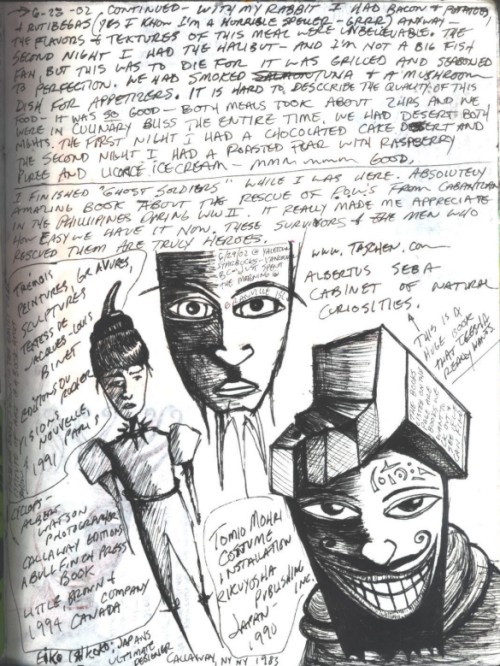 6-28-02 CONTINUED - WITH MY RABBIT I HAD BACON & POTATOES
& RUTIBEGAS (YES I KNOW I'M A HORRIBLE SPELLER - GRRR) ANYWAY -
THE FLAVORS & TEXTURES OF THIS MEAL WERE UNBELIEVABLE. THE
SECOND NIGHT I HAD THE HALIBUT - AND I'M NOT A BIG FISH
FAN, BUT THIS WAS TO DIE FOR IT WAS GRILLED AND SEASONED
TO PERFECTION. WE HAD SMOKED TUNA & A MUSHROOM
DISH FOR APPETIZERS. IT IS HARD TO DESCCRIBE THE QUALITY OF THIS
FOOD - IT WAS SO GOOD - BOTH MEALS TOOK ABOUT 2HRS AND WE
WERE IN CULINARY BLISS THE ENTIRE TIME. WE HAD DESERT BOTH
NIGHTS. THE FIRST NIGHT I HAD A CHOCOLATED CAKE DESERT AND
THE SECOND NIGHT I HAD A ROASTED PEAR WITH RASPBERRY
PUREE AND LICORICE ICE CREAM - MMM MMMM GOOD.
I FINISHED "GHOST SOLDIERS" WHILE I WAS HERE. ABSOLUTELY
AMAZING BOOK ABOUT THE RESCUE OF P.O.W.'S FROM CABANATUAN
IN THE PHILLIPINES DURING WWII. IT REALLY MADE ME APPRECIATE
HOW EASY WE HAVE IT NOW. THESE SURVIVORS & THE MEN WHO
RESCUED THEM ARE TRULY HEROES.
6/29/02 @
STARBUCKS
THE MORNING @
WWW. TASCHEN.COM
ALBERTUS SEBA
CABINET OF NATURAL
CURIOSITIES.
THIS IS A
HUGE BOOK
THAT TERESA
REALLY WANTS
PEINTURES, GRAVURES,
SCULPTURES
TEXTES DE
JACQUES LOUIS
BINET
EDITIONS DU
ROCHER
VISIONS
NOUVELLE,
1991 PARIS
CYCLOPS -
ALBERT
WATSON
PHOTOGRAPHER
CALLAWAY EDITIONS
A BULLFINCH PRESS
BOOK
LITTLE, BROWN &
COMPANY
1994 CANADA
TOMIO MOHRI
COSTUME
INSTALLATION
RIKUYOSHA
PUBLISHING
INC.
JAPAN -
1990
EIKO ISHIOKA: JAPAN'S
ULTIMATE
DESIGNER
CALLAWAY, NY NY 1983